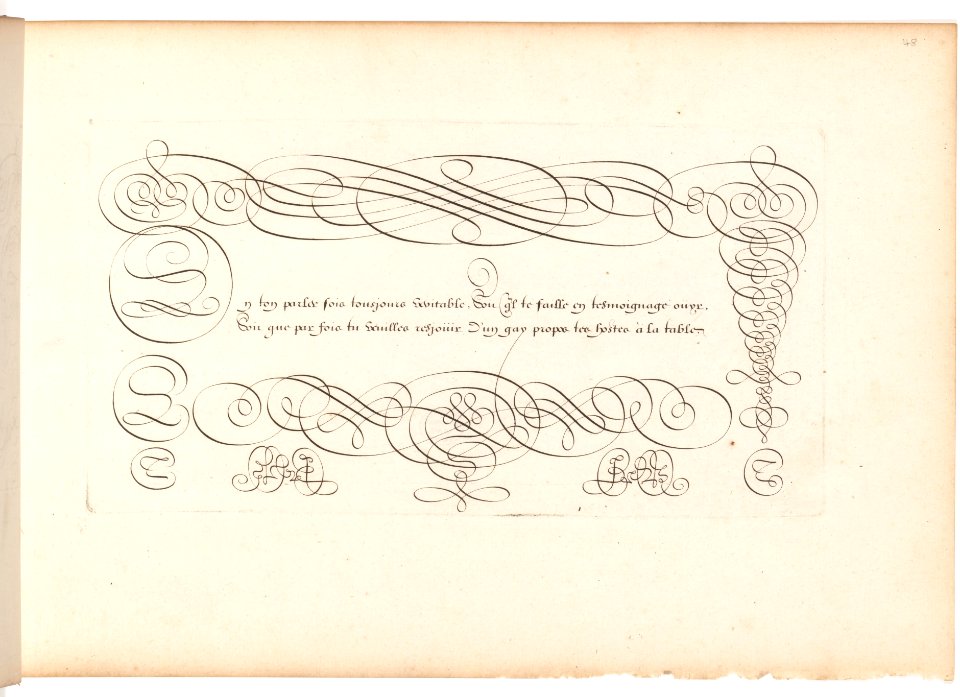 48
En ton parler sois tousjours veritable, Soit qu'il te faille en tesmoignage ouyr,
Soit que par fois tu veuilles resjouir D'un gay propos tes hostes à la table
E
E
E